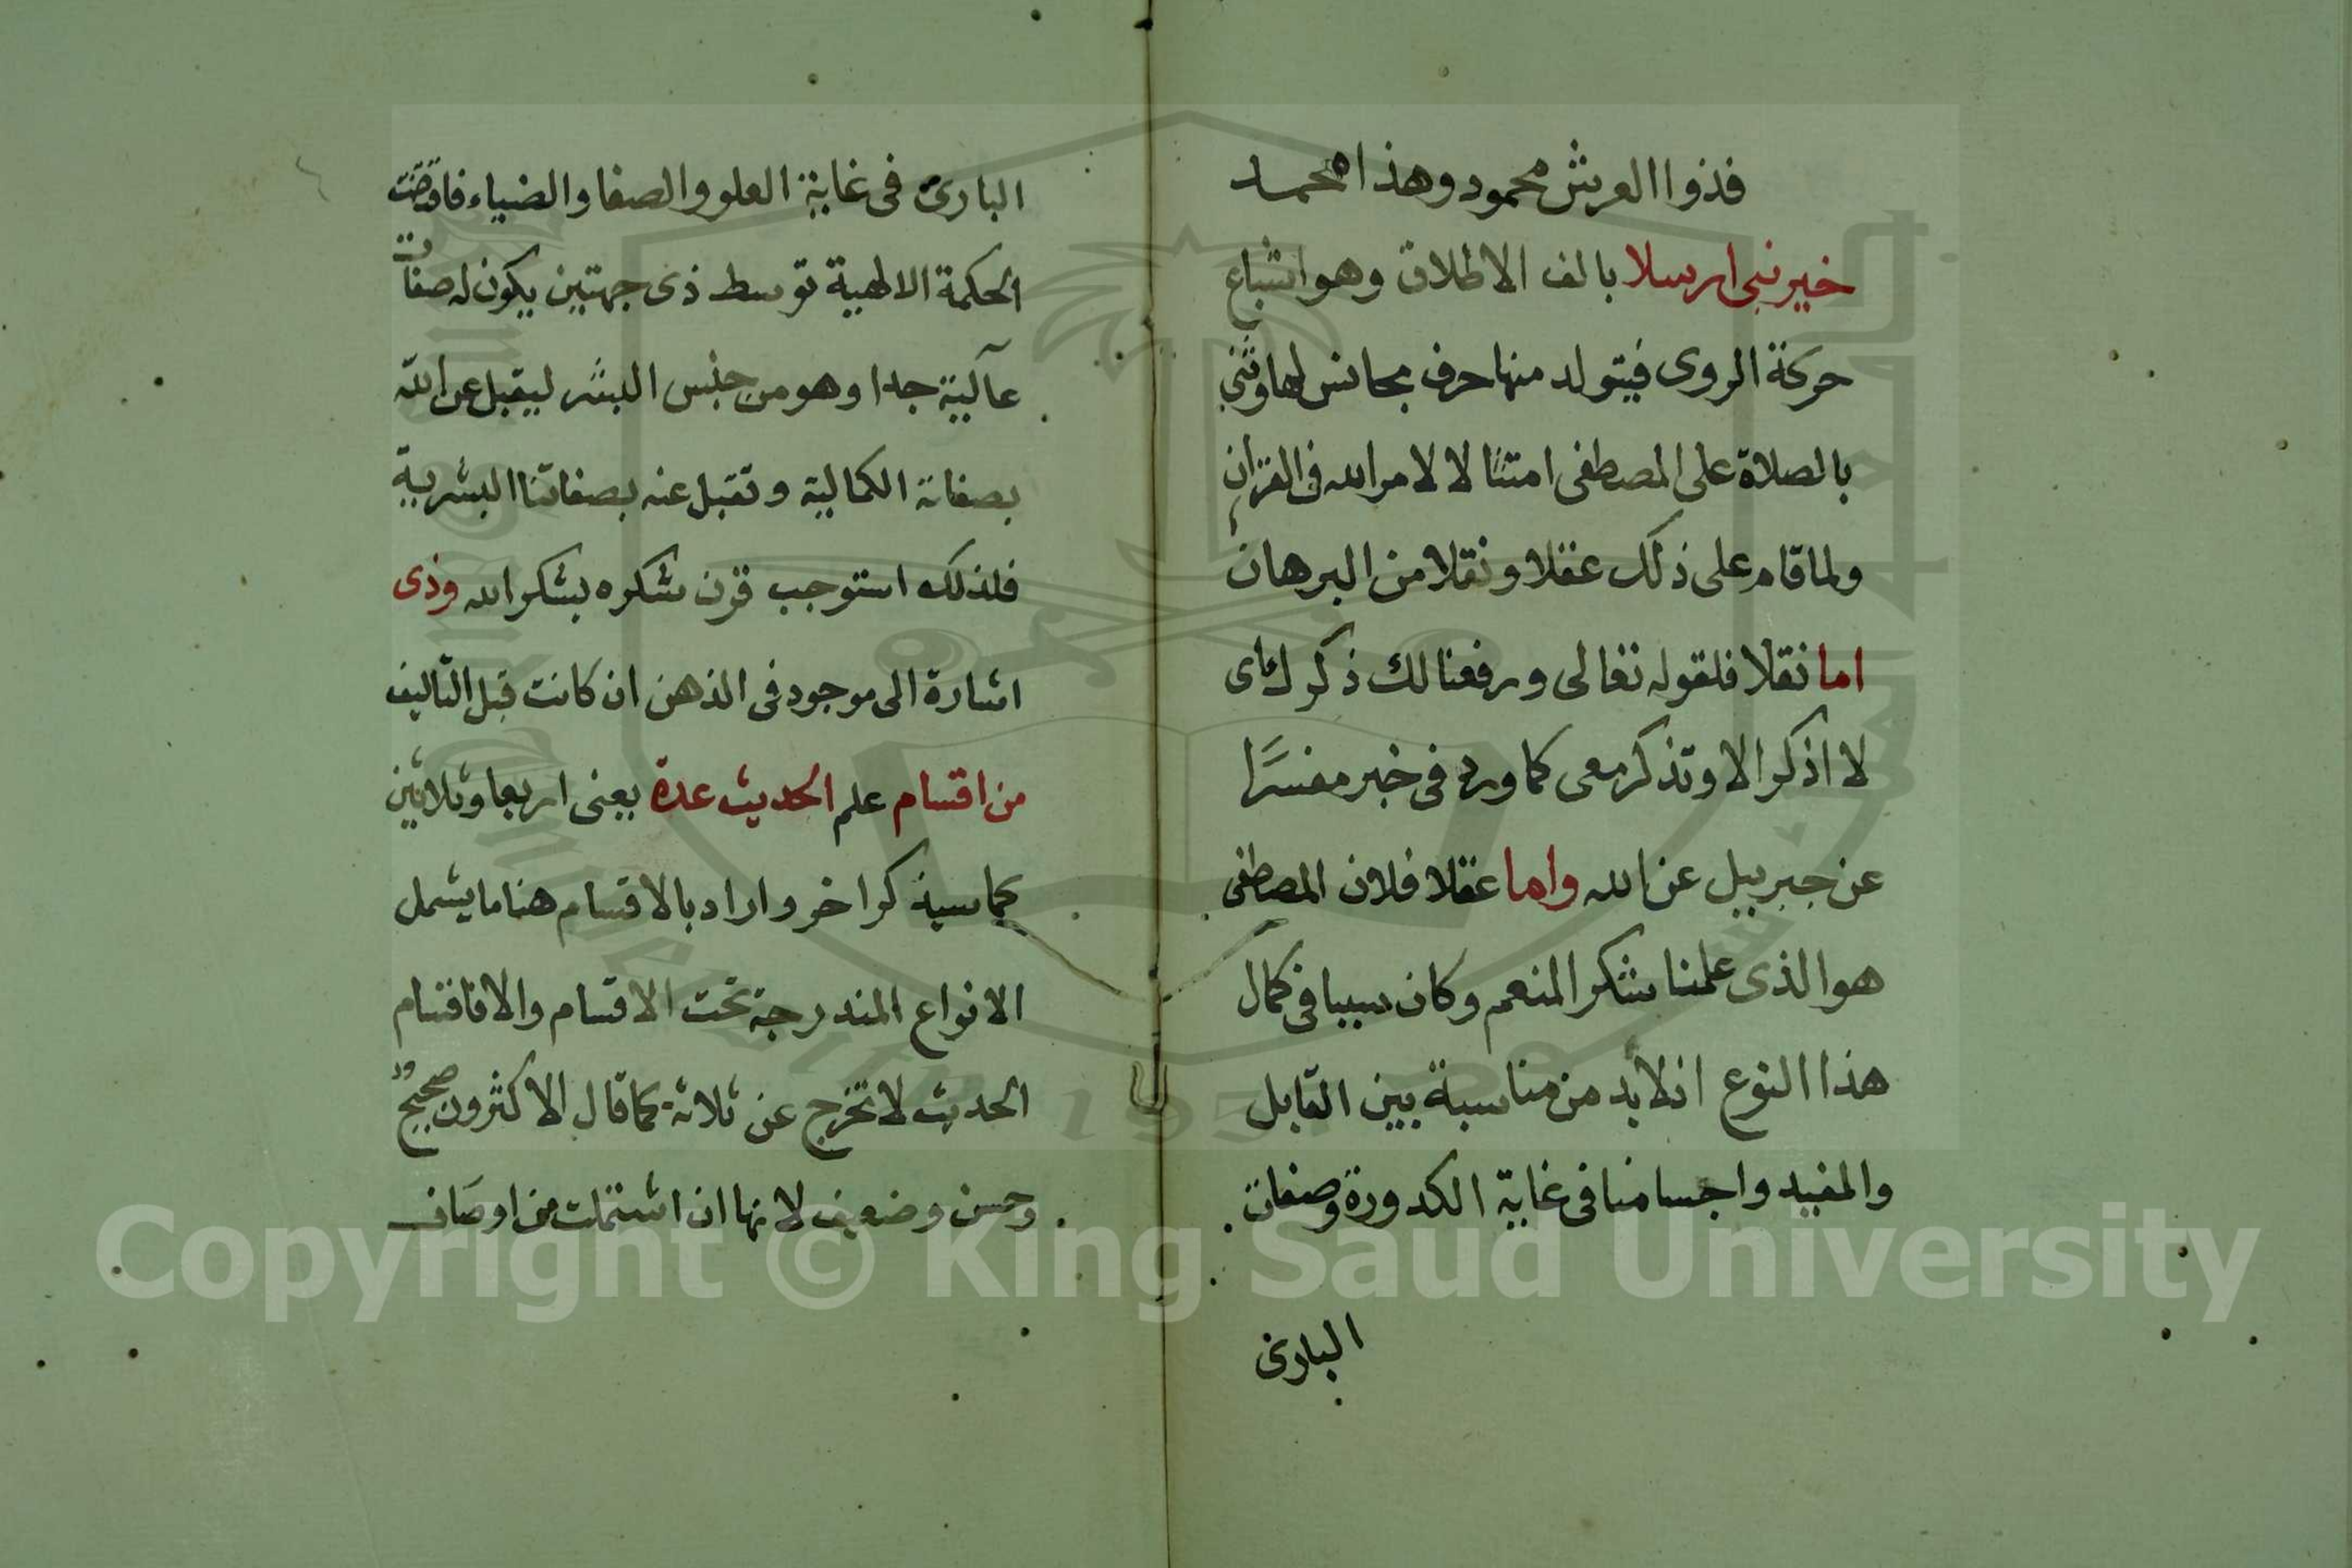 فذوا العرش محمود وهذا محمد
خير نبي ارسلا بالف الاطلاق وهو اشباع
حركة الروى فيتولد منها حرف مجانس لها وثني
بالصلاة على المصطفى امتثالا لامر الله في القران
ولما قام على ذلك عقلا ونقلا من البرهان
اما نقلا فلقوله تعالى ورفعنا لك ذكرك اى
لا اذكر الا وتذكر معى كما ورد فى خبر مفسرًا
عن جبريل عن الله واما عقلا فلان المصطفى
هو الذى علمنا شكر المنعم وكان سببا فى كمال
هذا النوع اذ لا بد من مناسبة بين القابل
والمفيد واجسامنا فى غاية الكدورة وصفات
البارى
البارى فى غاية العلو والصفا والضياء فاقتضت
الحكمة الالهية توسط ذى جهتين يكون له صفات
عالية جدا وهو من جنس البشر ليقبل عن الله
بصفاته الكمالية ونقبل عنه بصفاتنا البشرية
فلذلك استوجب قرن شكره بشكر الله وذى
اشارة الى موجود فى الذهن ان كانت قبل التاليف
من اقسام علم الحديث عدة يعنى اربعا وثلاثين
كما سيذكر اخر واراد بالاقسام هنا ما يشمل
الانواع المندرجة تحت الاقسام والا فاقسام
الحديث لا تخرج عن ثلاثة كما قال الاكثرون صحيح
وحسن وضعيف لانها ان اشتملت من اوصاف
Copyright © King Saud University